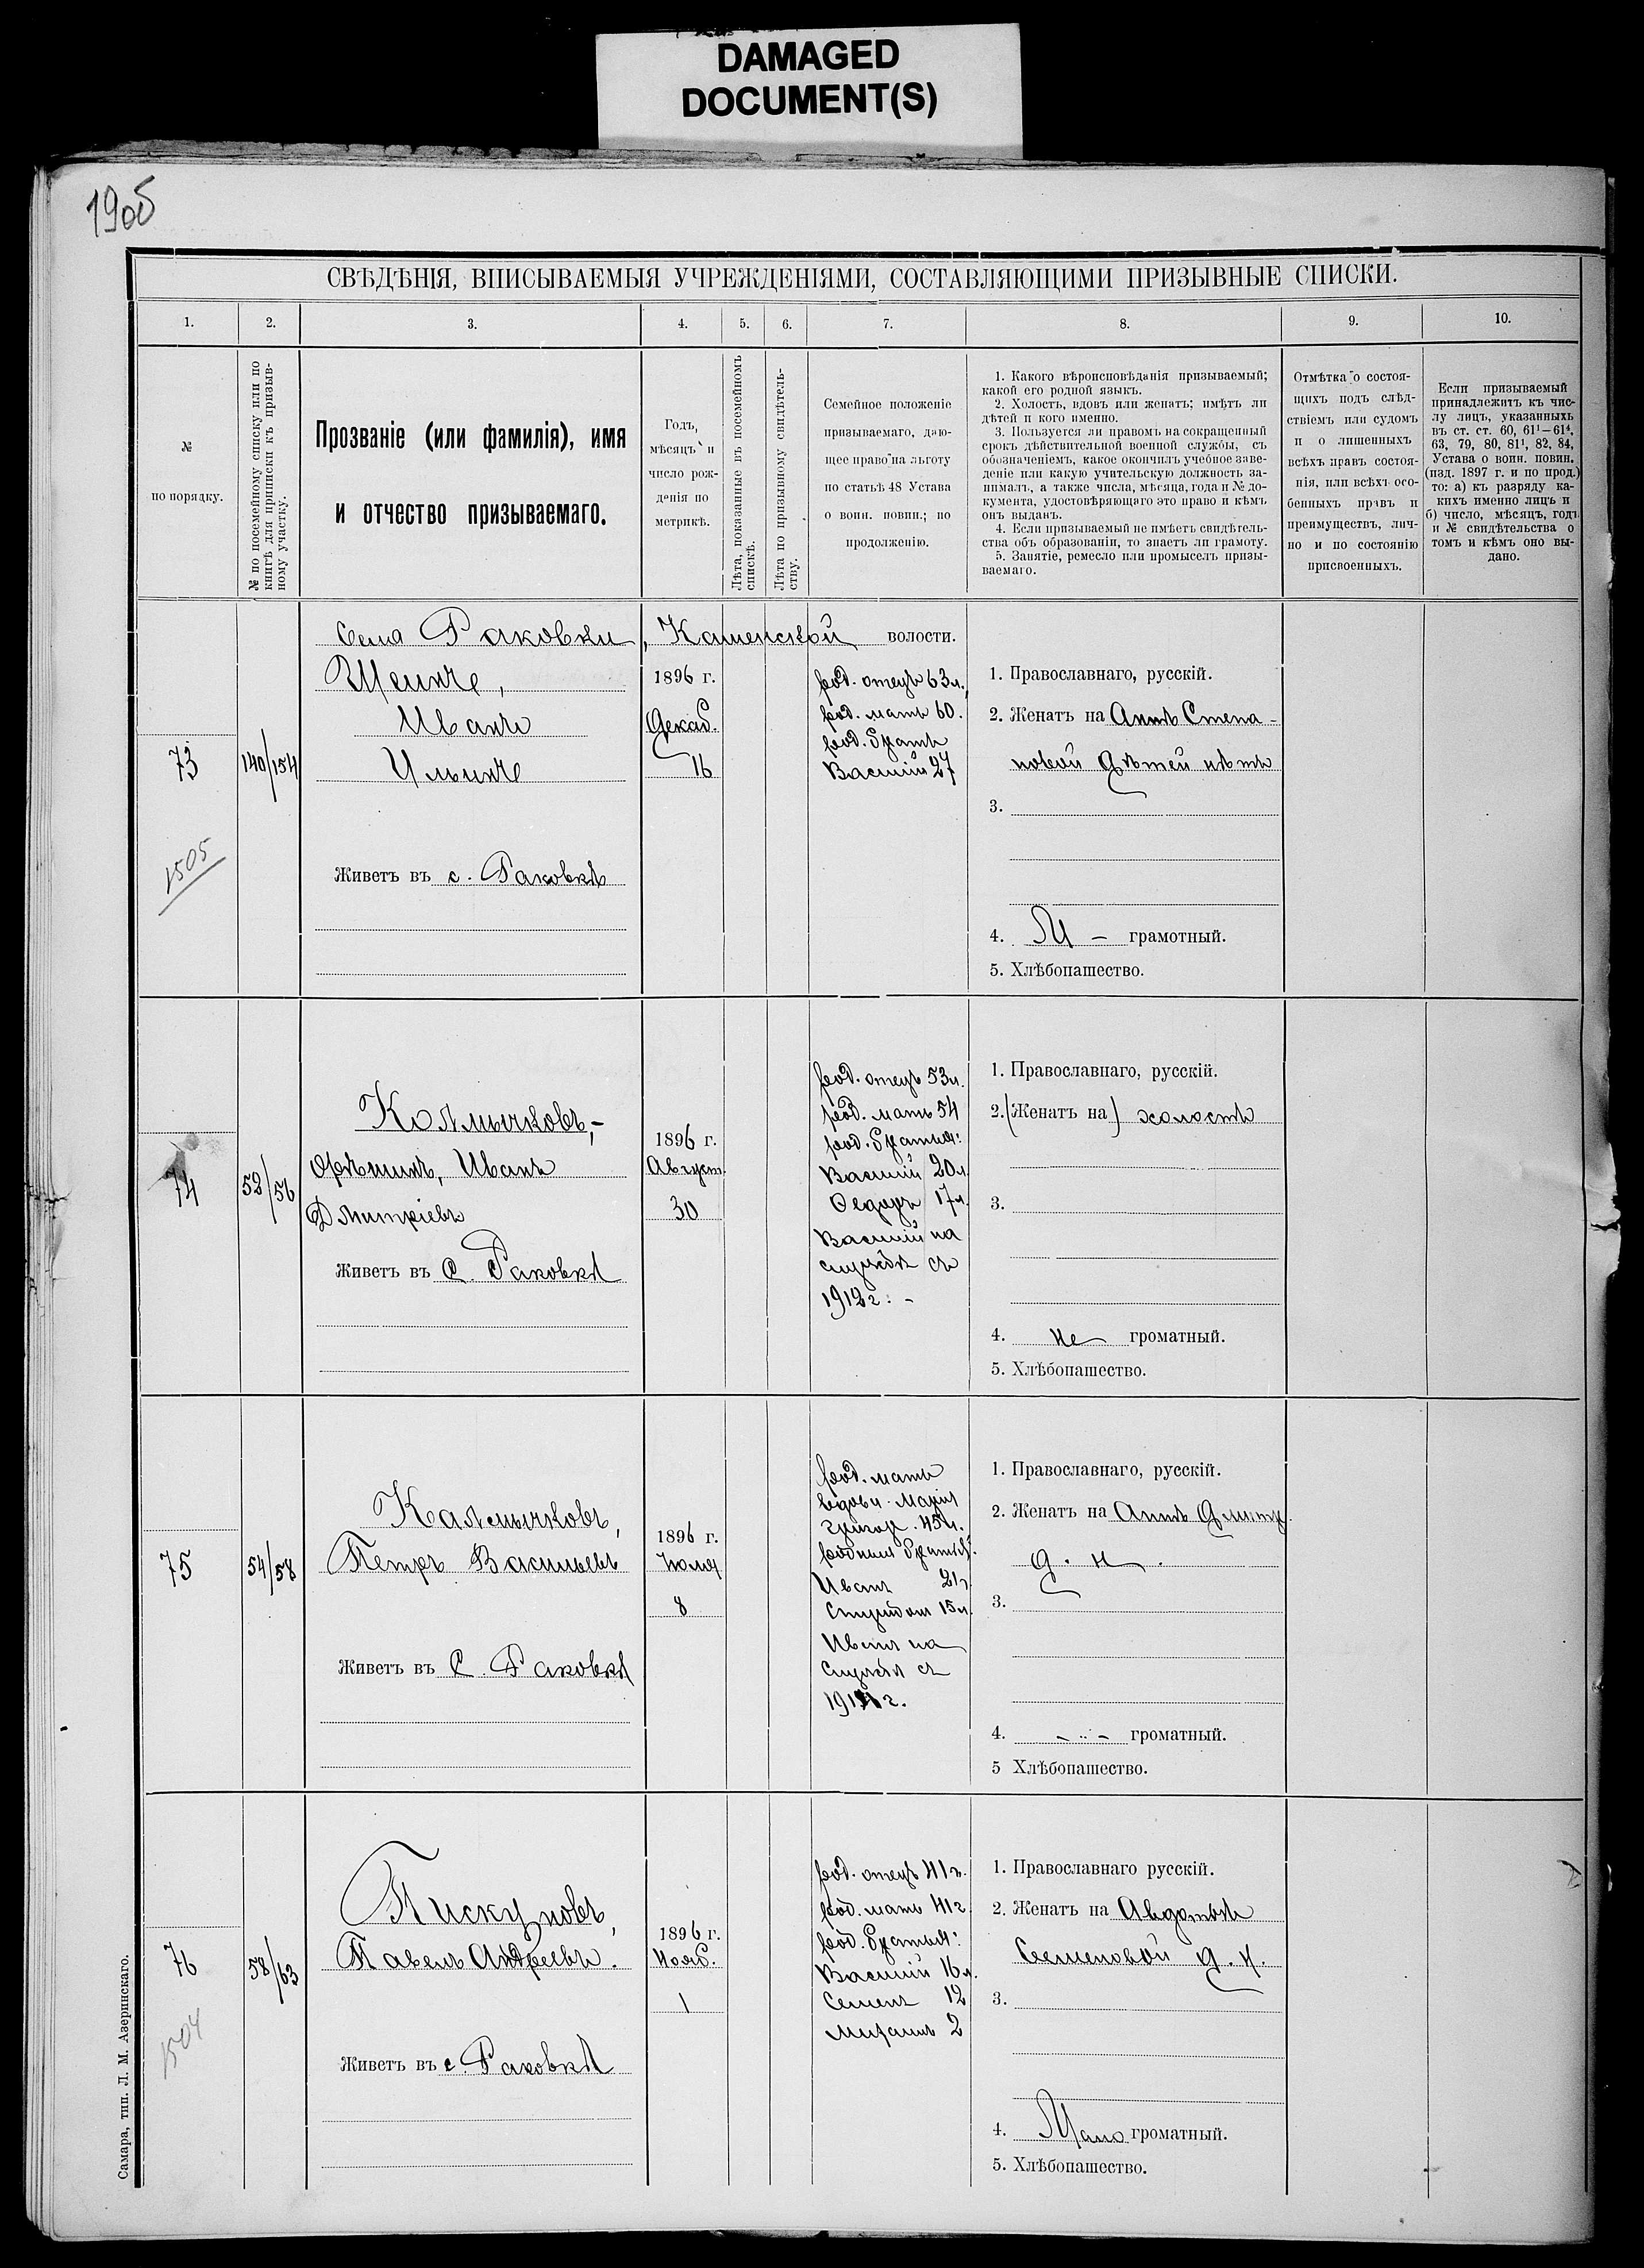 DAMAGED
DOCUMENT(S)
1905
СВѢДѢНІЯ, ВПИСЫВАЕМЫЯ УЧРЕЖДЕНІЯМИ, СОСТАВЛЯЮЩИМИ ПРИЗЫВНЫЕ СПИСКИ.
1.
2.
3.
4.
5.
6.
7.
8.
9.
10.
№
по порядку.
№ по посемейному списку или по
книгѣ для приписки къ призыв-
ному участку.
Прозваніе (или фамилія), имя
и отчество призываемаго.
Годъ,
мѣсяцъ и
число рож-
денія по
метрикѣ.
Лѣта, показанные въ посемейномъ
спискѣ.
Лѣта по призывному свидѣтель-
ству.
Семейное положеніе
призываемаго, даю-
щее право на льготу
по статьѣ 48 Устава
о воин. повин.; по
продолженію.
1. Какого вѣроисповѣданія призываемый;
какой его родной языкъ.
2. Холостъ, вдовъ или женатъ; имѣтъ ли
дѣтей и кого именно.
3. Пользуется ли правомъ на сокращенный
срокъ дѣйствительной военной службы, съ
обозначеніемъ, какое окончилъ учебное заве-
деніе или какую учительскую должность за-
нималъ, а также числа, мѣсяца, года и № до-
кумента, удостовѣряющаго это право и кѣмъ
онъ выданъ.
4. Если призываемый не имѣетъ свидѣтель-
ства объ образованіи, то знаетъ ли грамоту.
5. Занятіе, ремесло или промыселъ призы-
ваемаго.
Отмѣтка о состоя-
щихъ подъ слѣд-
ствіемъ или судомъ
и о лишенныхъ
всѣхъ правъ состоя-
нія, или всѣхъ осо-
бенныхъ правъ и
преимуществъ, лич-
но и по состоянію
присвоенныхъ.
Если призываемый
принадлежитъ къ чис-
лу лицъ, указанныхъ
въ ст. ст. 60, 61¹—61⁴,
63, 79, 80, 81¹, 82, 84,
Устава о воин. повин.
(изд. 1897 г. и по прод.)
то: а) къ разряду ка-
кихъ именно лицъ и
б) число, мѣсяцъ, годъ
и № свидѣтельства о
томъ и кѣмъ оно вы-
дано.
Села Раковки, Каменской волости.
73
1505
140/154
Иванъ
Ильинъ
Живетъ въ с. Раковкѣ
1896 г.
Декаб.
16
род. отецъ 63 л.,
род. мать 60.
род. братъ
Василій 27
1. Православнаго, русскій.
2. Женатъ на Аннѣ Степа-
новой дѣтей нѣтъ
3.
4. М – грамотный.
5. Хлѣбопашество.
74
52/56
Колмычковъ,-
Орѣшинъ, Иванъ
Дмитріевъ
Живетъ въ С. Раковкѣ
1896 г.
Август.
30
род. отецъ 53 л.
род. мать 54
род. братья:
Василій 20 л.
Федоръ 17 л.
Василій на
службѣ съ
1912 г. -
1. Православнаго, русскій.
2. (Женатъ на) холостъ
3.
4. не громатный.
5. Хлѣбопашество.
75
54/58
Калмычковъ,
Петръ Васильевъ
Живетъ въ С. Раковкѣ
1896 г.
Іюля
8
род. мать
вдова Марія
Григор. 45 л.
родныя братья:
Иванъ 21 г.
15 л.
Иванъ на
службѣ съ
1. Православнаго, русскій.
2. Женатъ на Аннѣ Дмитр.
д. н.
3.
4. – " – громатный.
5 Хлѣбопашество.
76
1504
58/63
Пискуновъ,
Павелъ Андреевъ.
Живетъ въ с. Раковкѣ
1896 г.
Нояб.
1
род. отецъ 41 г.
род. мать 41 г.
род. братья:
Василій 16 л.
Семенъ 12
Михаилъ 2
1. Православнаго русскій.
2. Женатъ на Авдотьѣ
Семеновой д. н.
3.
4. Мало громатный.
5. Хлѣбопашество.
Самара, тип. Л. М. Азеринскаго.